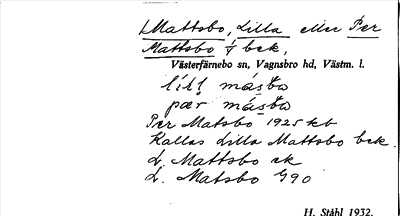 Mattsbo, Lilla eller Per
Mattsbo f bek,
Västerfärnebo sn, Vagnsbro hd, Västm. l.
lill másbo
pær másbo
Per Matsbo 1925 kb
Kallas Lilla Mattsbo bek.
L. Mattsbo ek
L. Matsbo G90
H. Ståhl 1932.